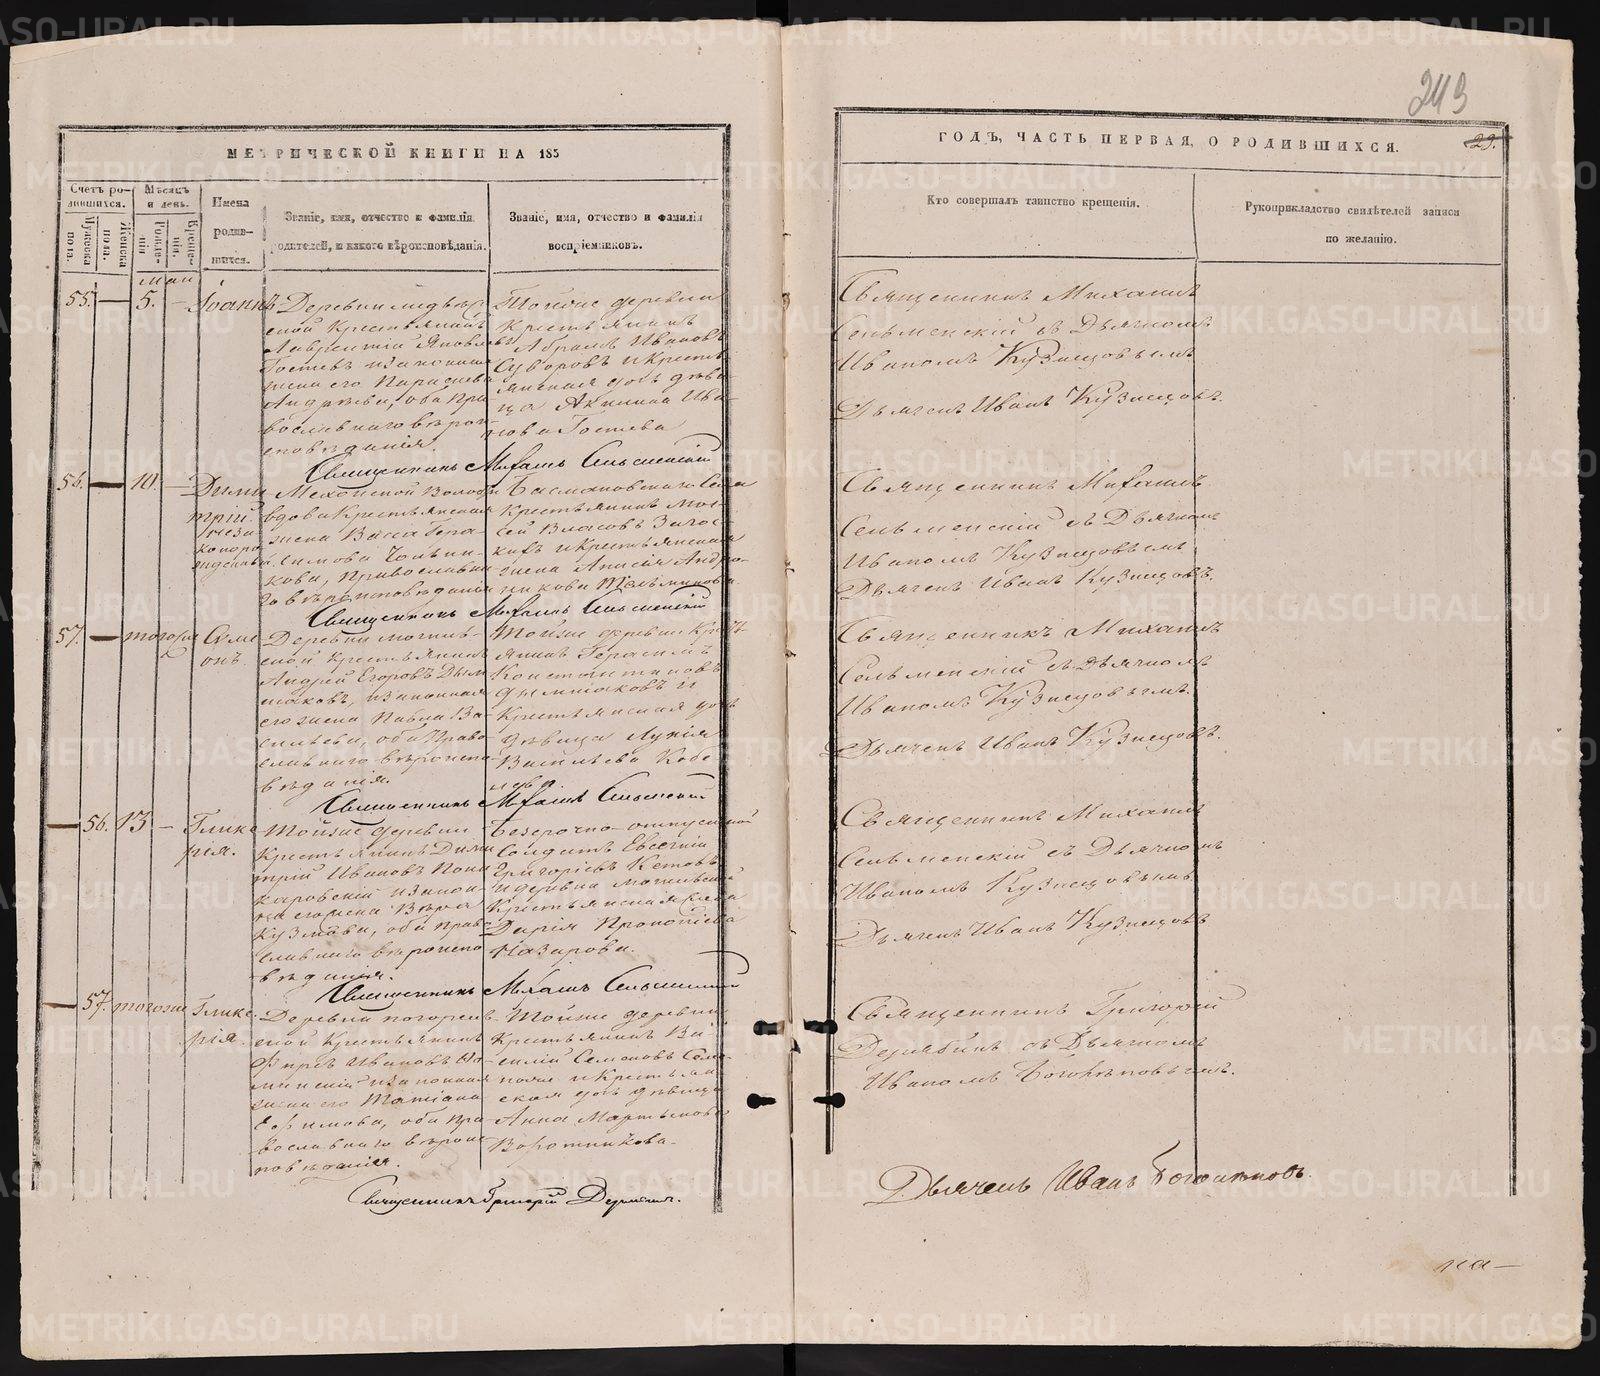 МЕТРИЧЕСКОЙ КНИГИ НА 185
Счетъ ро-
дившихся.
Мужеска
пола.
Женска
пола.
Мѣсяцъ
и день.
Рожде-
нія
Креще-
нія.
Имена
родив-
шихся.
Званіе, имя, отчество и фамилія
родителей, и какого вѣроисповѣданія.
Званіе, имя, отчество и фамилія
воспріемниковъ.
маи
55. — 5. — Іоаннъ
Деревни
ской крестьянинъ
Лаврентій Яковлевъ
Гостевъ и законная
жена его Параскева
Андрѣева, оба пра
вославнаго вѣрои
сповѣданія.
Тойже деревни
крестьянинъ
Абрамъ Ивановъ
Суворовъ и кресть
янская дочь дѣви-
ца Акилина Ива-
нова Гостева
Священникъ Михаилъ Сельменскій
56. — 10. — Дими
трій
незако
норо
жденный
Мехонской Волости
вдова Крестьянская
жена Васса Гера
симова
кова, Православна
го вѣроисповѣданія
Басмановскаго Села
крестьянинъ Мои-
сей Власовъ
кихъ и крестьянская
жена Анисія Андро-
никова
Священникъ Михаилъ Сельменскій
57. — тогоже Симе
онъ.
Деревни
ской крестьянинъ
Андрей Егоровъ Дым
шаковъ, и законная
его жена Павла Ва-
сильева, оба Право
славнаго вѣроиспо
вѣданія.
Тойже деревни Кресть
янинъ Герасимъ
Константиновъ
Дымшаковъ и
Крестьянская дочь
дѣвица Лукія
Васильева Кобе
лева
Священникъ Михаилъ Сельменскій
— 56. 13 — Глике
рія.
Тойже деревни
Крестьянинъ Дими
трій Ивановъ Пона
маровскій и закон-
ная его жена Вѣра
Кузмова, оба право
славнаго вѣроиспо
вѣданія.
Безсрочно-отпускной
Солдатъ Евгеній
Григорьевъ Кетовъ
и деревни
Крестьянская жена
Дарія Прокопіева
Назарова.
Священникъ Михаилъ Сельменскій
— 57. тогоже Глике
рія.
Деревни погорель-
ской Крестьянинъ
Фирсъ Ивановъ
и законная
жена его Татіана
Ефимова, оба пра
вославнаго вѣроис
повѣданія.
Тойже деревни
Крестьянинъ Ва
силій Семеновъ
и Крестьян
ская дочь дѣвица
Анна Мартынова
Воротникова.
Священникъ Григорій Дерябинъ.
243
ГОДЪ, ЧАСТЬ ПЕРВАЯ, О РОДИВШИХСЯ.
29.
Кто совершалъ таинство крещенія.
Рукоприкладство свидѣтелей записи
по желанію.
Священникъ Михаилъ
Сельменскій съ Дьячкомъ
Иваномъ Кузнецовымъ
Дьячекъ Иванъ Кузнецовъ.
Священникъ Михаилъ
Сельменскій съ Дьячкомъ
Иваномъ Кузнецовымъ
Дьячекъ Иванъ Кузнецовъ.
Священникъ Михаилъ
Сельменскій съ Дьячкомъ
Иваномъ Кузнецовымъ.
Дьячекъ Иванъ Кузнецовъ.
Священникъ Михаилъ
Сельменскій съ Дьячкомъ
Иваномъ Кузнецовымъ
Дьячекъ Иванъ Кузнецовъ
Священникъ Григорій
Дерябинъ съ Дьячкомъ
Иваномъ Боголѣповымъ.
Дьячекъ Иванъ Боголѣповъ.
на—
METRIKI.GASO-URAL.RU